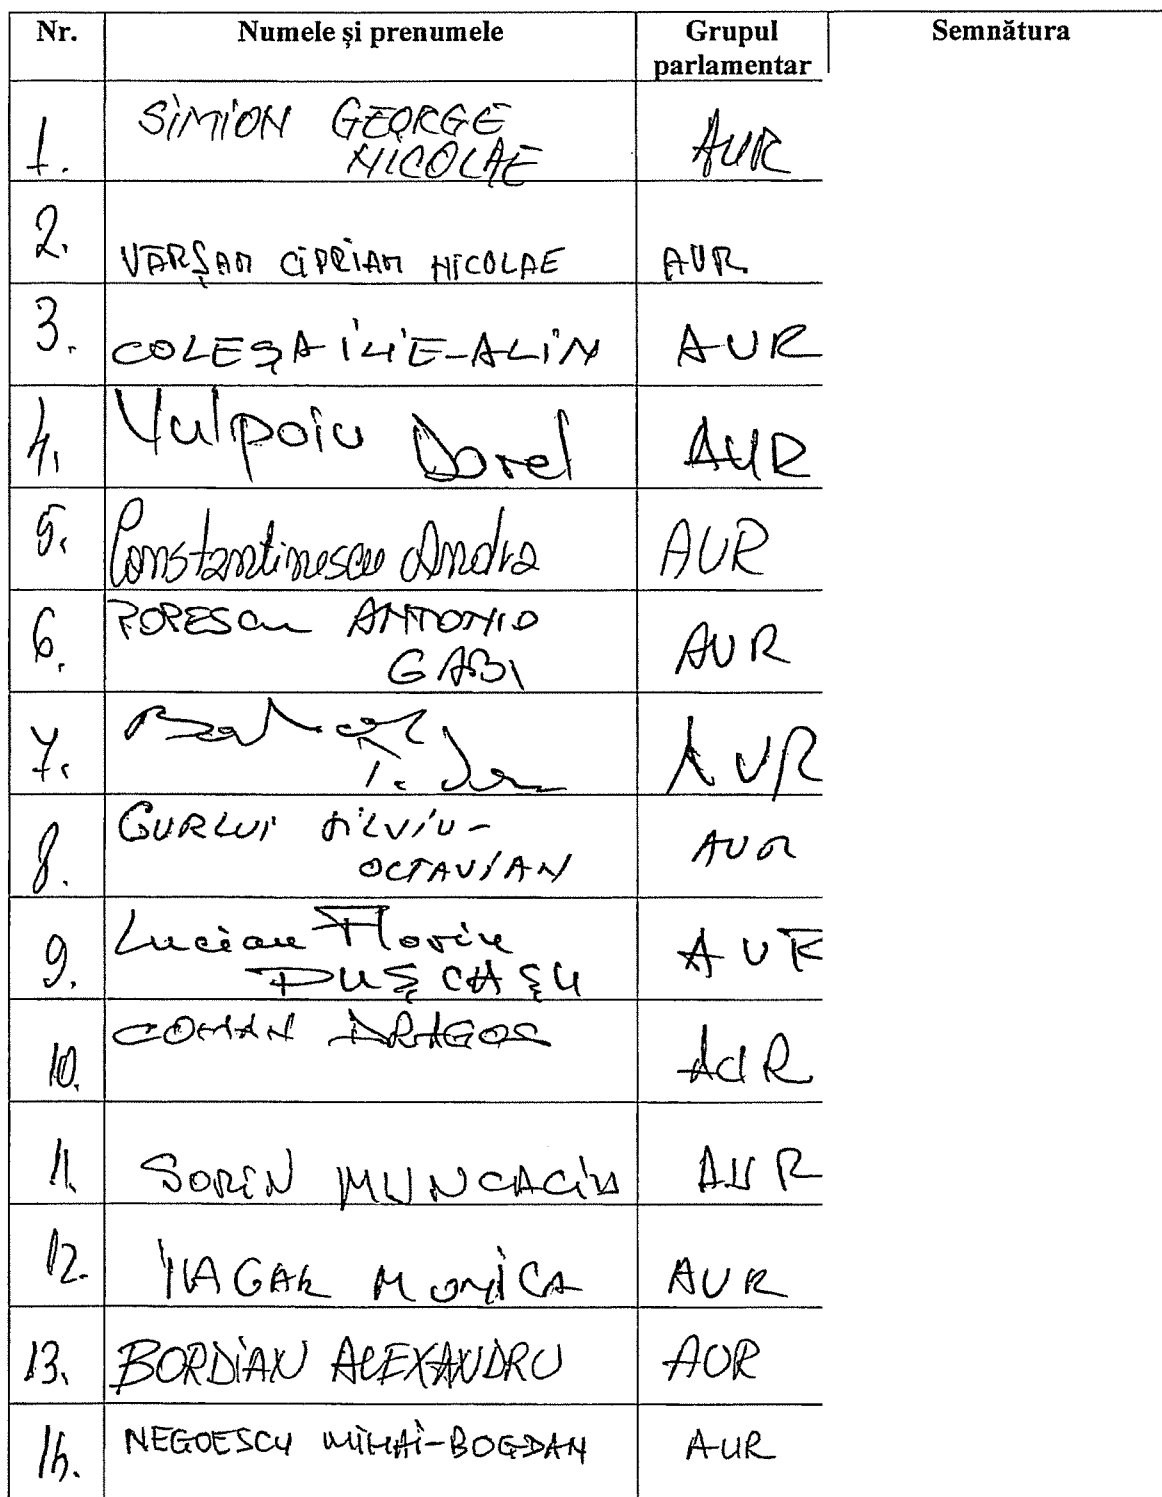 Nr. Numele și prenumele Grupul parlamentar Semnătura
1. SIMION GEORGE AUR
NICOLAE
2. VÂRȘAN CIPRIAN NICOLAE AUR
3. COLEȘA ILIE-ALIN AUR
4. Vulpoiu Dorel AUR
5. Constantinescu Andra AUR
6. POPESCU ANTONIO AUR
GABI
7. AUR
8. GURLUI SILVIU- AUR
OCTAVIAN
9. Lucian Florin AUR
PUȘCAȘU
10. COMAN DRAGOS AUR
11. SORIN MUNCACIU AUR
12. MONICA AUR
13. BORDIAN ALEXANDRU AUR
14. NEGOESCU MIHAI-BOGDAN AUR